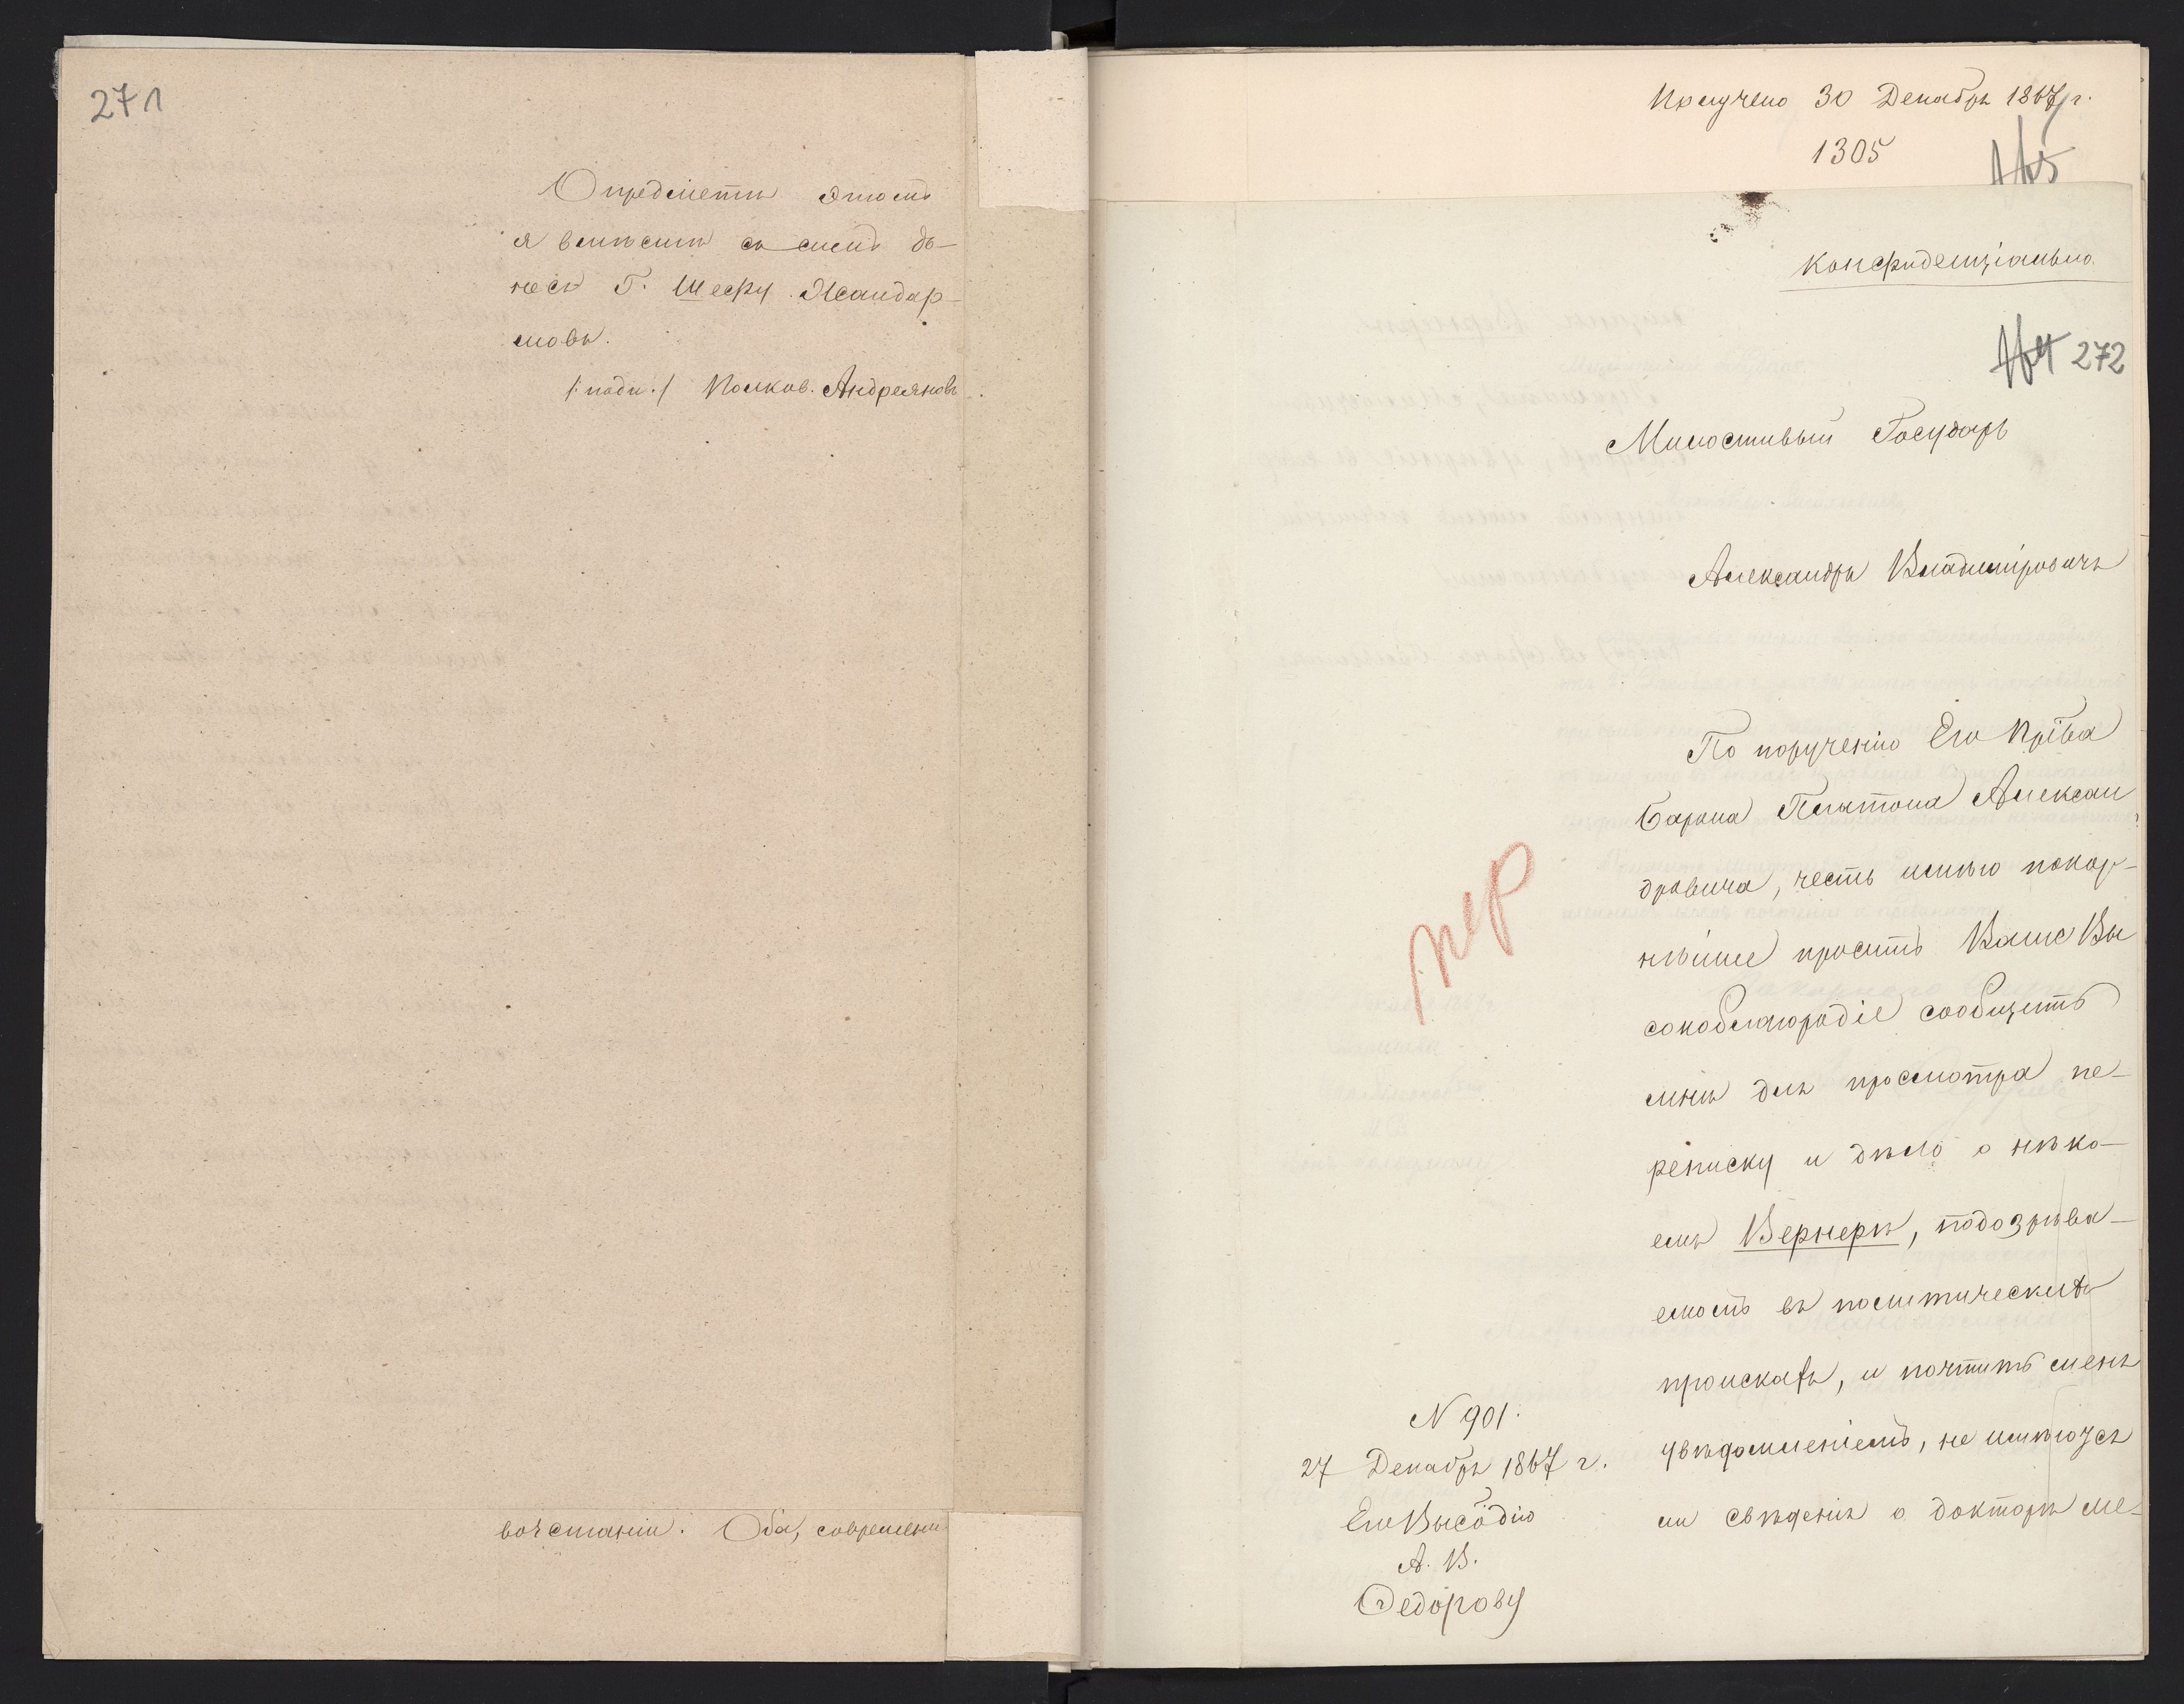 271
О предметѣ этомъ
я вмѣстѣ съ симъ до-
несъ Г. Шефу Жандар-
мовъ.
/:подп:/ Полков. Андреяновъ.
возстаніи. Оба, современ
Получено 30 Декабря 1867 г.
1305
165
Конфиденціально.
164 272
Милостивый Государь
Александръ Владиміровичъ
По порученію Его Пр̃ва
Барона Платона Алексан
дровича, честь имѣю покор-
нѣйше просить Ваше Вы
сокоблагородіе сообщить
мнѣ для просмотра пе-
реписку и дѣло о нѣко-
емъ Вернерѣ, подозрѣва-
емомъ въ политическихъ
проискахъ, и почтить меня
увѣдомленіемъ, не имѣются
ли свѣденія о докторѣ ме-
пер
N 901.
27 Декабря 1867 г.
Его Высо̃дію
А. В.
Федорову